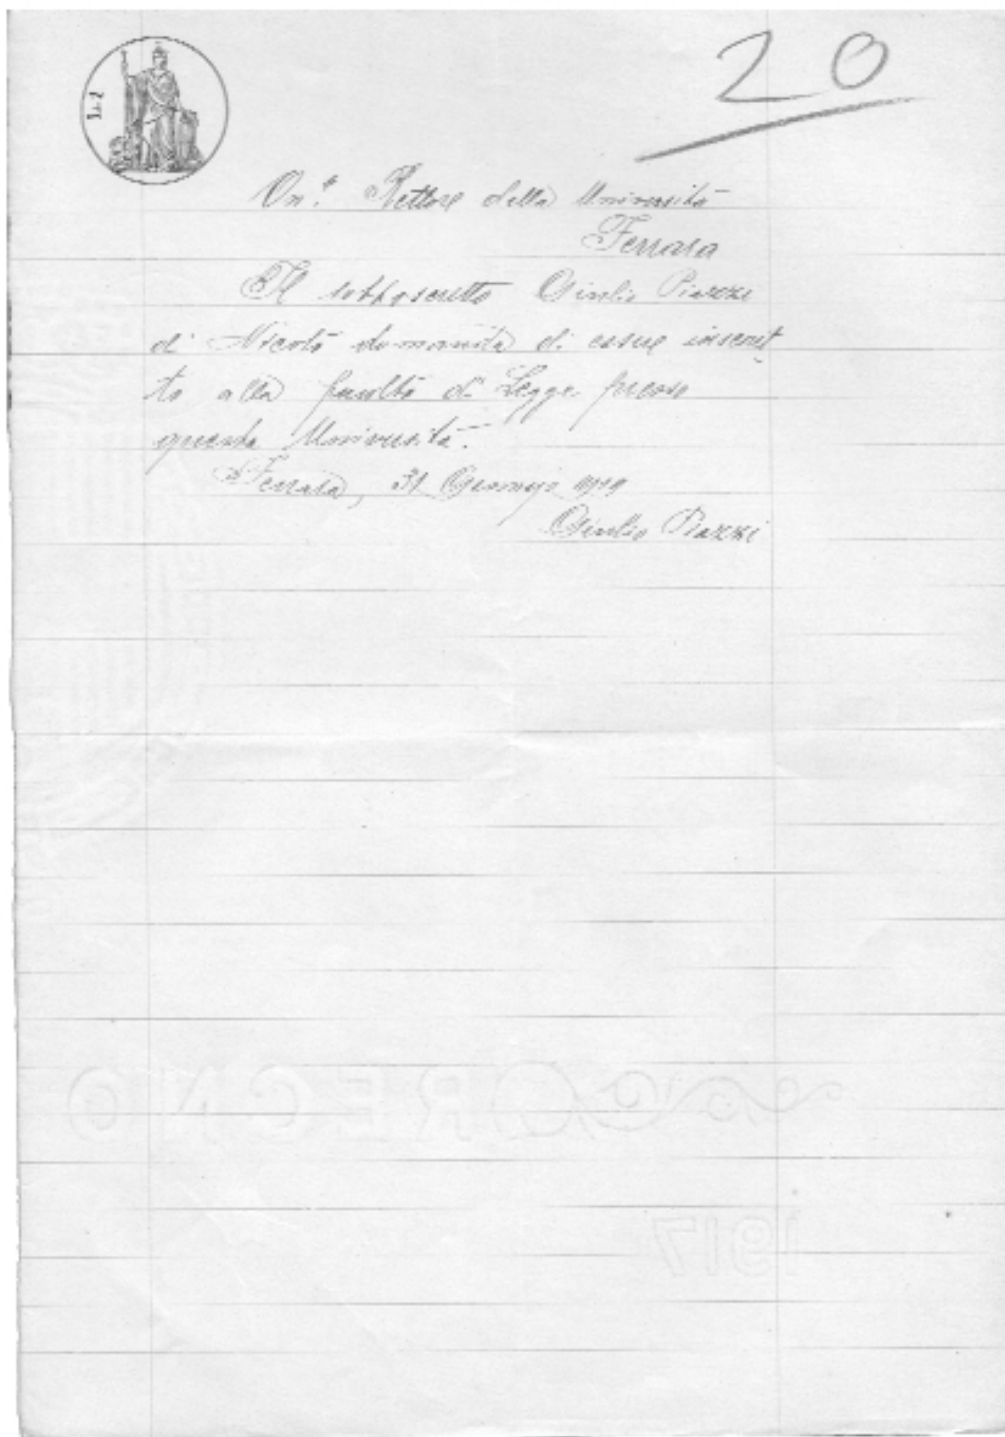 L. 2
20
On.e Rettore della Università
Ferrara
Il sottoscritto Giulio Piazzi
di Nicolò domanda di essere inscrit-
to alla facoltà di Legge presso
questa Università.
Ferrara, 31 Gennajo 1919
Giulio Piazzi
REGNO
1917